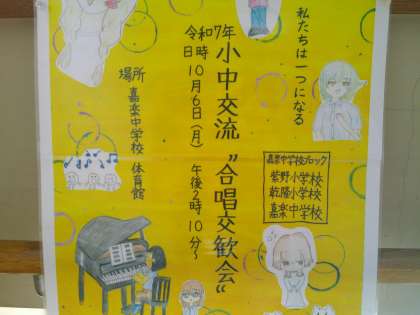 私たちは一つになる
嘉楽中学校ブロック
紫野小学校
乾隆小学校
嘉楽中学校
令和7年
小中交流 〝合唱交歓会〟
日時 10月6日(月) 午後2時10分～
場所 嘉楽中学校 体育館